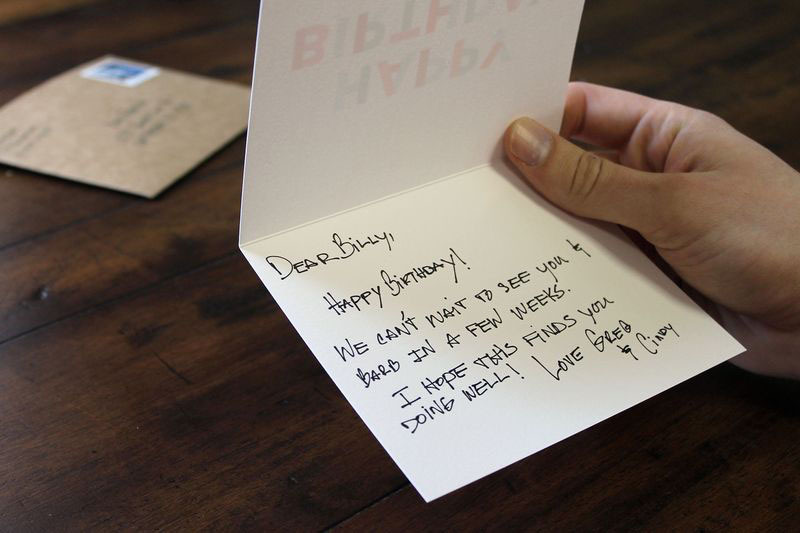 HAPPY
BIRTHDAY
DEAR BILLY,
HAPPY BIRTHDAY!
WE CAN'T WAIT TO SEE YOU &
BARB IN A FEW WEEKS.
I HOPE THIS FINDS YOU
DOING WELL! LOVE GREG
& CINDY